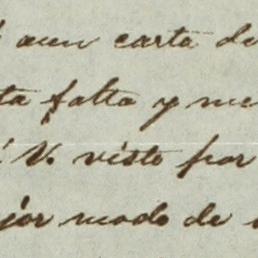 aun carta de
ta falta y me
V. visto por
jor modo de